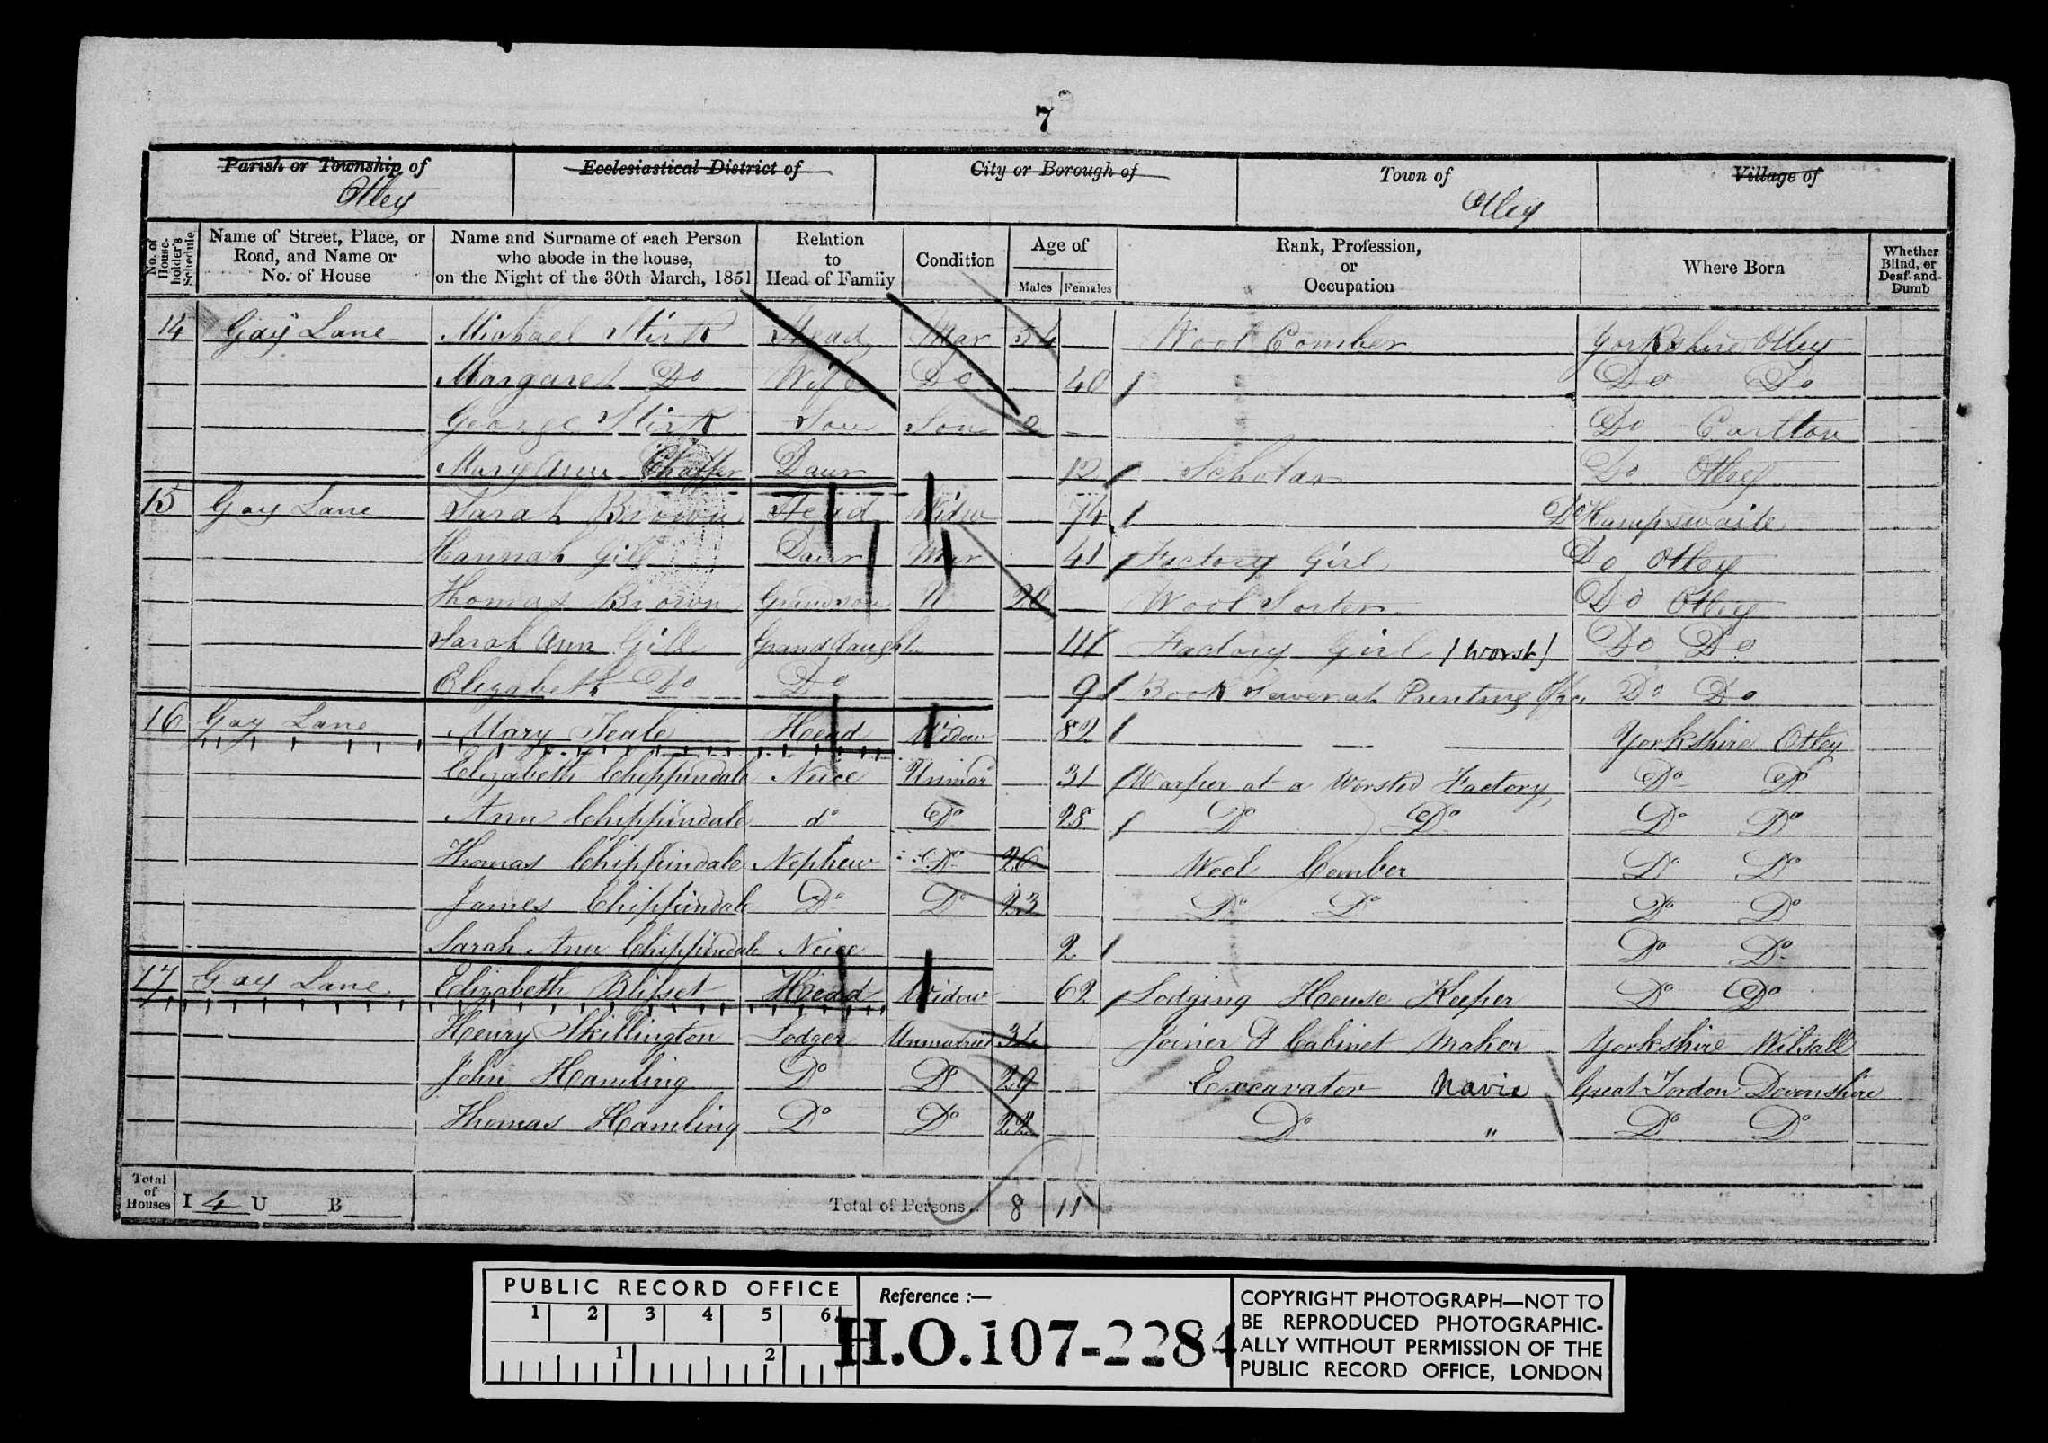 7
Parish or Township of
Otley
Ecclesiastical District of
City or Borough of
Town of
Otley
Village of
No. of House-holder's Schedule
Name of Street, Place, or Road, and Name or No. of House
Name and Surname of each Person who abode in the house, on the Night of the 30th March, 1851
Relation to Head of Family
Condition
Age of
Males Females
Rank, Profession, or Occupation
Where Born
Whether Blind, or Deaf-and-Dumb
14 Gay Lane Michael Stirk Head Mar 54 Wool Comber Yorkshire Otley
Margaret Do Wife Do 40 Do Do
George Stirk Son Son Do Carlton
Mary Ann Chaffer Daur 12 Scholar Do Otley
15 Gay Lane Sarah Brown Head Widw 74 Do Hampswaite
Hannah Gill Daur Mar 41 Factory Girl Do Otley
Thomas Brown Grandson U 20 Wool Sorter Do Otley
Sarah Ann Gill Granddaught 11 Factory Girl (Worst) Do Do
Elizabeth Do Do 9 Book Sewer at Printing Do Do
16 Gay Lane Mary Teale Head Widow 82 Yorkshire Otley
Elizabeth Chippindale Neice Unmar 31 Warper at a Worsted Factory Do Do
Ann Chippindale do Do 28 Do Do Do Do
Thomas Chippindale Nephew Do 26 Wool Comber Do Do
James Chippindale Do Do 23 Do Do Do Do
Sarah Ann Chippindale Neice 2 Do Do
17 Gay Lane Elizabeth Blifset Head Widow 62 Lodging House Keeper Do Do
Henry Skillington Lodger Unmarried 34 Joiner & Cabinet Maker Yorkshire Wilsall
John Hamling Do Do 29 Excavator Navie Great Tordon Devonshire
Thomas Hamling Do Do 22 Do " Do Do
Total of Houses I 4 U B Total of Persons 8 11
PUBLIC RECORD OFFICE
1 2 3 4 5 6
1 2
Reference :—
H.O.107-2284
COPYRIGHT PHOTOGRAPH—NOT TO
BE REPRODUCED PHOTOGRAPHIC-
ALLY WITHOUT PERMISSION OF THE
PUBLIC RECORD OFFICE, LONDON